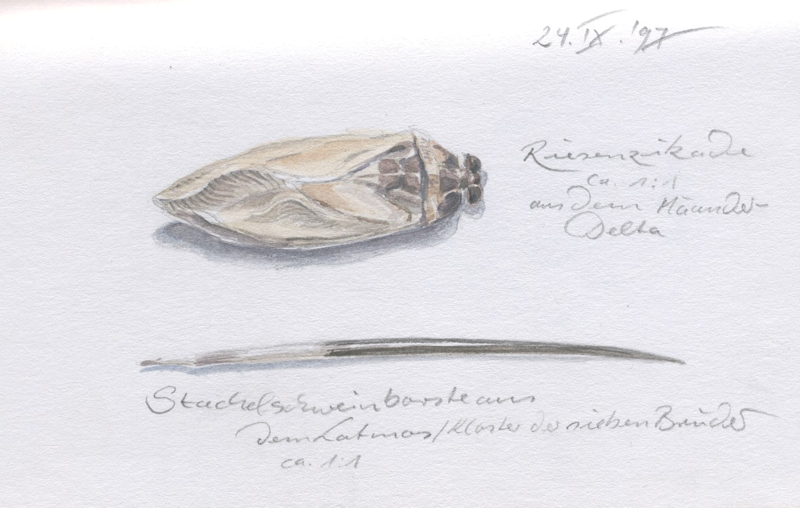 24. IX. '97
Riesenzikade
ca. 1:1
aus dem Mäander-
Delta
Stachelschweinborste aus
dem Latmos/Kloster der sieben Brüder
ca. 1:1